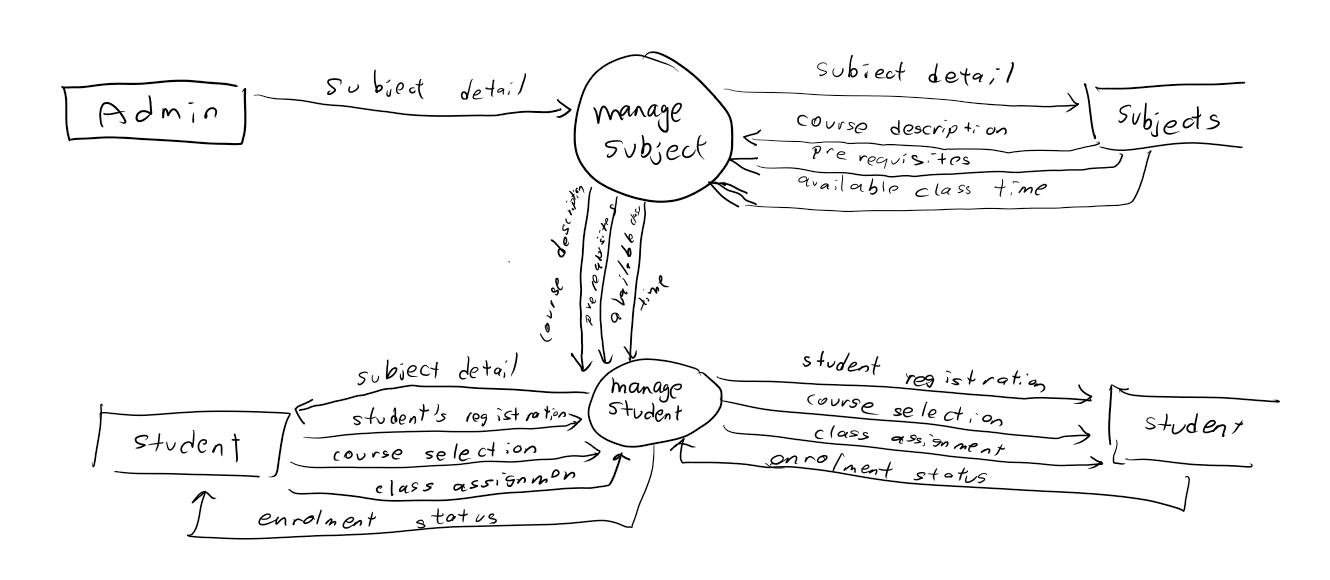 Admin
subject detail
manage
subject
subject detail
subjects
course description
pre requisites
available class time
course description
pre requisites
time
subject detail
student's registration
course selection
class assignmen
enrolment status
student
manage
student
student registration
course selection
class assignment
enrolment status
student